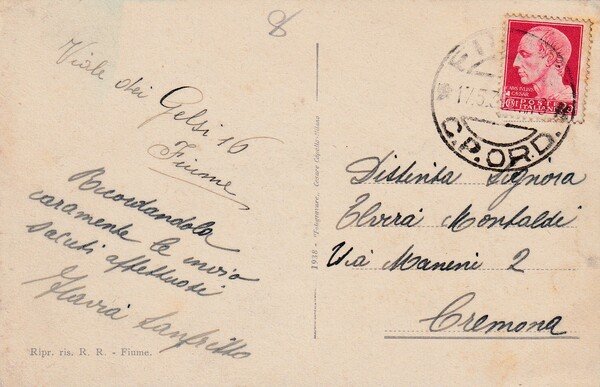 Viale dei
Gelsi 16
Fiume
Ricordandola
caramente le invio
saluti affettuosi
Flavia
Ripr. ris. R. R. - Fiume.
1938 - "Fotogravure". Cesare Capello-Milano
CAIVS IVLIVS
CAESAR
POSTE
ITALIANE
17.5.3
C.P.ORD.
Distinta Signora
Elvira Montaldi
Via Maneni 2
Cremona